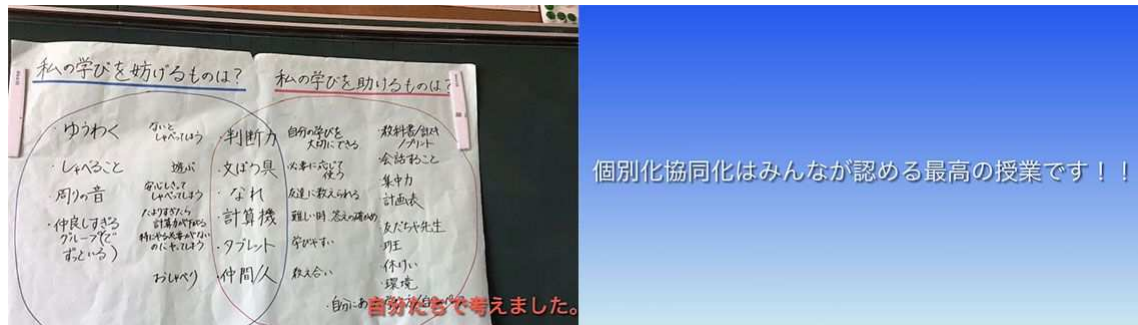 私の学びを妨げるものは?
私の学びを助けるものは?
・ゆうわく
・しゃべること
・周りの音
・仲良しすぎる
グループ(で
ずっといる)
ないと
しゃべってしまう
遊ぶ
安心しきって
しゃべってしまう
たよりすぎたら
計算力が下がる
おしゃべり
・判断力
・文ぼう具
・なれ
・計算機
・タブレット
・仲間/人
自分の学びを
大切にできる
必要に応じて
使う
友達に教えられる
難しい時 答えの確かめ
学びやすい
教え合い
・教科書/
/プリント
・会話すること
・集中力
・計画表
・友だちや先生
・班
・休けい
・環境
・自分にあ
自分たちで考えました。
個別化協同化はみんなが認める最高の授業です！！